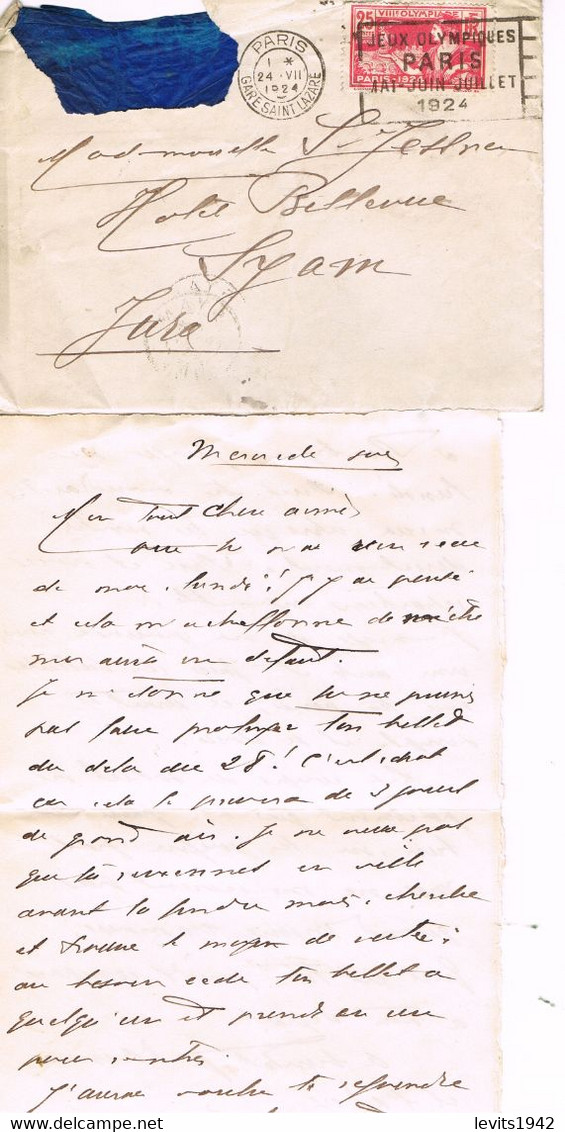 PARIS
1 *
24 - VII
1924
GARE SAINT LAZARE
25
VIIIe OLYMPIADE
PARIS-1924
JEUX OLYMPIQUES
PARIS
MAI-JUIN-JUILLET
1924
Mademoiselle
Hotel Bellevue
Syam
Jura
Mercredi soir
Mon tout cher aimé
tu n'as rien reçu
de moi, lundi! J'y ai pensé
et cela me chiffonne de
mis ainsi en défaut.
Je m'étonne que tu ne puisses
pas faire prolonger ton billet
au delà du 28! C'est idiot
car cela te privera de 3 jours
de grand air. Je ne veux pas
que tu reviennes en ville
avant la fin du mois, cherche
et trouve le moyen de rester;
au besoin cède ton billet à
quelqu'un et prends en un
pour rentrer.
J'aurai voulu te
levits1942